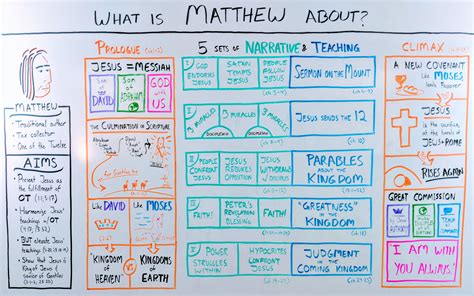 WHAT IS MATTHEW ABOUT?
MATTHEW
- Traditional author
- Tax collector
- One of the Twelve
AIMS
- Present Jesus as
the fulfillment of
OT
- Harmonize Jesus'
teachings w/ OT
- BUT elevate Jesus'
teachings
- Show that Jesus is
King of Jews &
savior of Gentiles
PROLOGUE
JESUS = MESSIAH
Son of DAVID
Son of ABRAHAM
GOD with US
THE CULMINATION OF SCRIPTURE
LIKE DAVID
LIKE MOSES
KINGDOM OF HEAVEN
VS
KINGDOMS OF EARTH
5 SETS OF NARRATIVE & TEACHING
I
GOD ENDORSES JESUS
SATAN TEMPTS JESUS
PEOPLE FOLLOW JESUS
SERMON ON THE MOUNT
3 MIRACLES
DISCIPLESHIP
3 MIRACLES
DISCIPLESHIP
3 MIRACLES
JESUS SENDS THE 12
PEOPLE CONFRONT JESUS
JESUS REBUKES OPPOSITION
JESUS WITHDRAWS
PARABLES ABOUT THE KINGDOM
FAITH!
PETER'S REVELATION & BLESSING
FAITH!
"GREATNESS" IN THE KINGDOM
POWER STRUGGLES WITHIN
HYPOCRITES CONFRONT JESUS
JUDGMENT & THE COMING KINGDOM
CLIMAX
A NEW COVENANT
LIKE MOSES
JESUS
is the sacrifice,
at the hands of
JEWS + ROME
RISES AGAIN
GREAT COMMISSION
I AM WITH YOU ALWAYS!